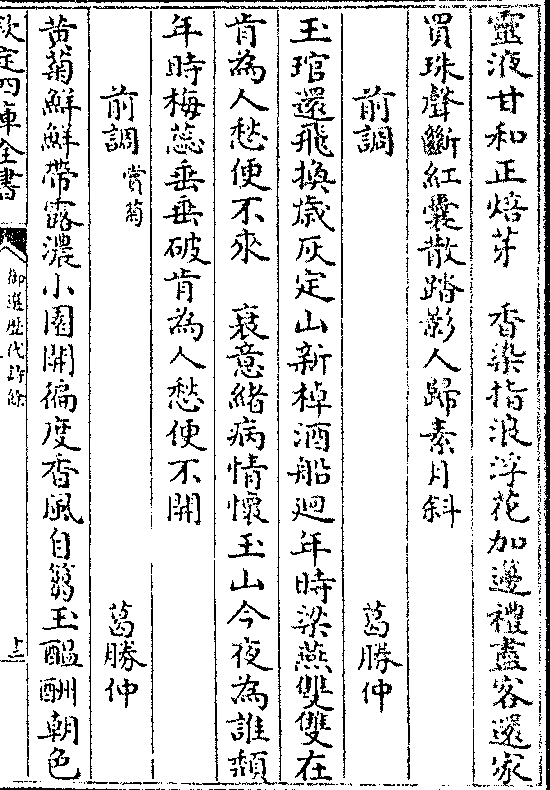 靈液甘和正焙芽　香染指浪浮花加邊禮盡客還家
買珠聲斷紅囊散踏影人歸素月斜
前調　葛勝仲
玉琯還飛換歳灰定山新棹酒船廻年時梁燕雙雙在
肯為人愁便不來　衰意緒病情懷玉山今夜為誰頽
年時梅蕊垂垂破肯為人愁便不開
前調賞菊　葛勝仲
黄菊鮮鮮帶露濃小園開徧度香風自篘玉醖酬朝色
欽定四庫全書
御選歴代詩餘
十二